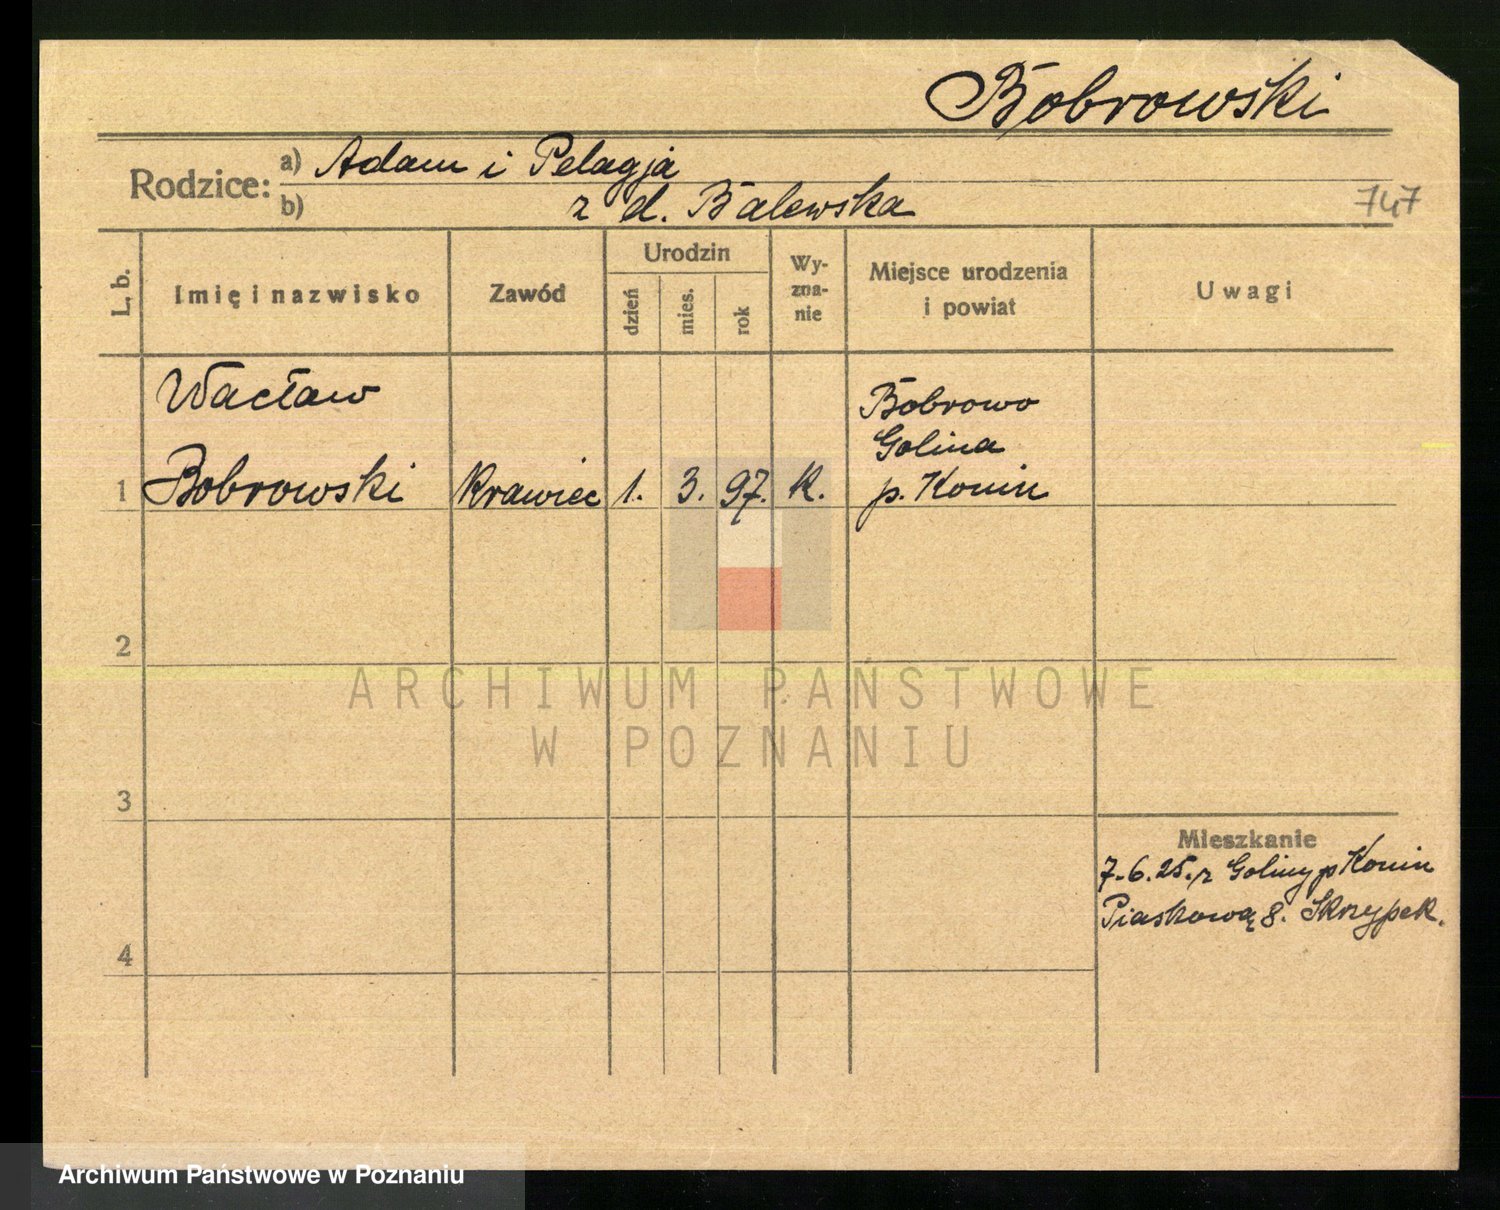 Bobrowski
Rodzice: a) Adam i Pelagja
b) z d. Balewska
747
L. b.
Imię i nazwisko
Zawód
Urodzin
dzień
mies.
rok
Wy-
zna-
nie
Miejsce urodzenia
i powiat
Uwagi
Wacław
Bobrowski
1
Krawiec
1.
3.
97.
k.
Bobrowo
Golina
p. Konin
2
ARCHIWUM PAŃSTWOWE
W POZNANIU
3
Mieszkanie
7.6.25. z Goliny p Konin
Piaskową 8. Skrzypek.
4
Archiwum Państwowe w Poznaniu